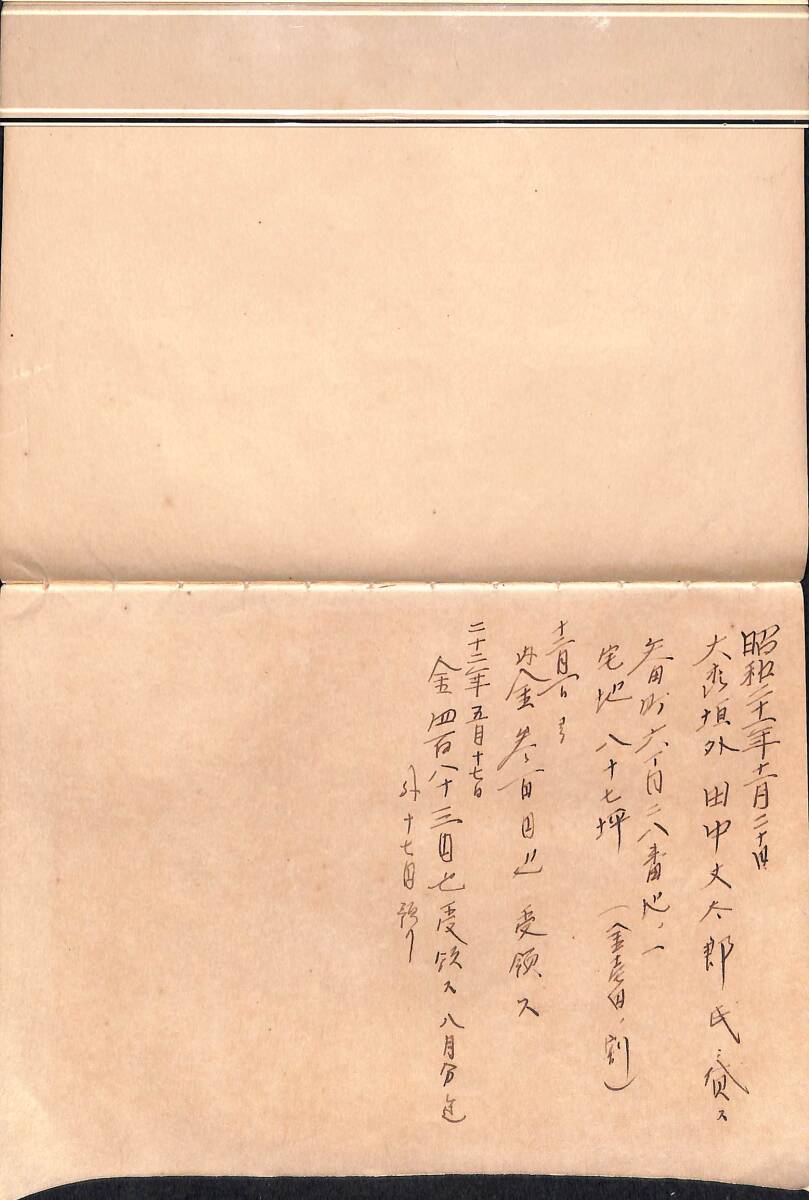 昭和二十一年十一月二十日
大 垣外 田中文太郎氏ニ貸ス
矢田町六丁目二八番地ノ一
宅地 八十七坪 (金壱円ノ割)
十二月一日
内金参百円也 受領ス
二十二年五月十七日
金四百八十三円也受領ス 八月分迄
外十七円預リ